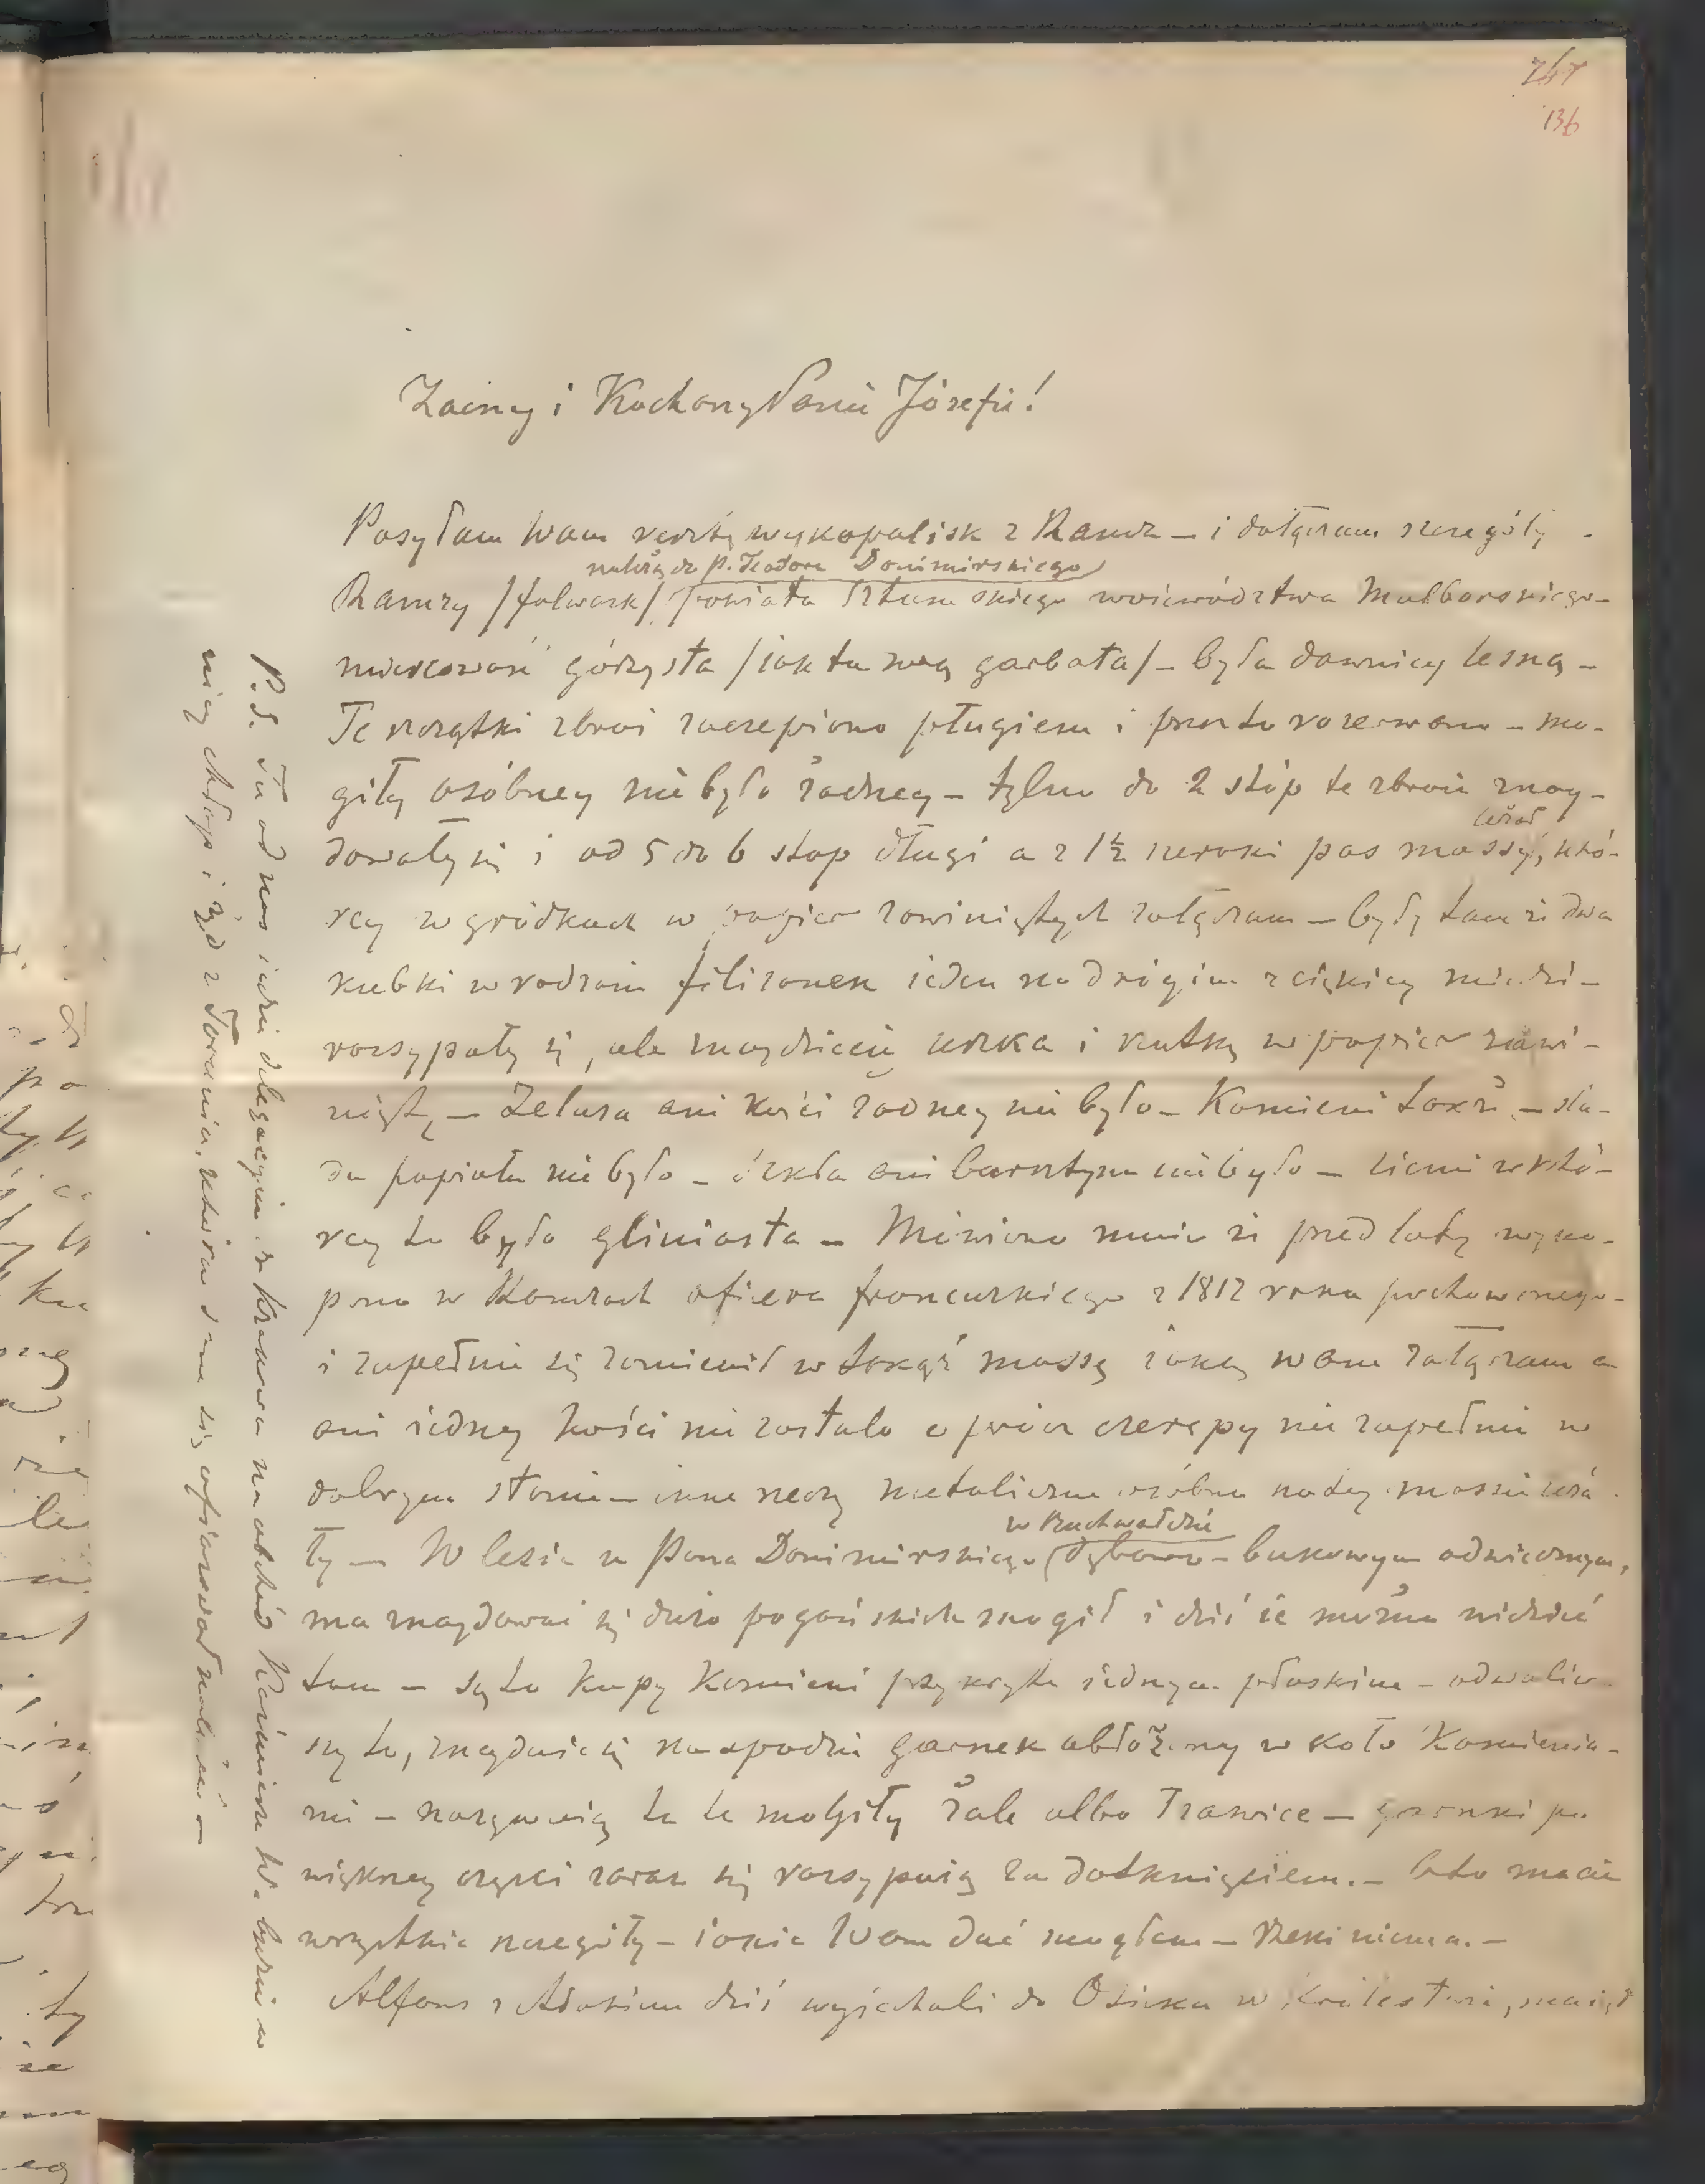 747
136
Zacny i Kochany Panie Józefie!
Posyłam Wam resztę wykopalisk z Ramz – i dołączam szczegóły.
należą do p. Teodora Donimirskiego
Ramzy /folwark/ powiatu Sztumskiego woiewództwa Malborskiego–
mieiscowość górzysta /iak tu zwą garbata/ – była dawniey lesną –
Te szczątki zbroi zaczepiono pługiem i przez to rozerwano – mo-
giły osóbney nie było żadney – tylko do 2 stóp te zbroie znay-
dowały się i od 5 do 6 stop długi a z 1½ szeroki pas massy, któ-
leżał
rey w gródkach w papier zawiniętych załączam – były tam że dwa
kubki w rodzaiu filiżanek ieden na drógim z cięnkiey miedzi –
rozsypały się, ale znaydziecie uszka i resztkę w papier zawi-
niętą – Żelaza ani kości żadney nie było – Kamieni także – śla-
du popiołu nie było – szkła ani bursztynu nie było – ziemia w któ-
rey to było gliniasta – Mówiono mnie że przed laty wyko-
pano w Ramzach oficera francuzkiego z 1812 roku pochowanego –
i zupełnie się zamienił w takąż massę iaką wam załączam a
ani iedney kości nie zostało oprócz czerepy nie zupełnie w
dobrym stanie – inne rzeczy metaliczne osóbno na tey massie leża-
ły – W lesie u Pana Donimirskiego (dębowo–bukowym odwiecznym,
w Buchwałdzie
ma znaydować się dużo pogańskich mogił i dziś ie można widzieć
tam – są to kupy kamieni przykryte iednym płaskim – odwaliw-
szy to, znayduie się na spodzie garnek obłożony w koło kamienia-
mi – nazywaią tu te mogiły Żale albo Trawice – garnki po
większey części zaraz się rozsypuią za dotknięciem. – Oto macie
wszystkie szczegóły – iakie Wam dać mogłem – Rzeki niema. –
Alfons z Adasiem dziś wyiechali do Osieka w Królestwie, maiąt
P.S. Tu od nas iedzie delegacyia do Krakowa na obchód Kazimierza W. będzie w
niey chłop i żyd z Torunia, który sam się ofiarował